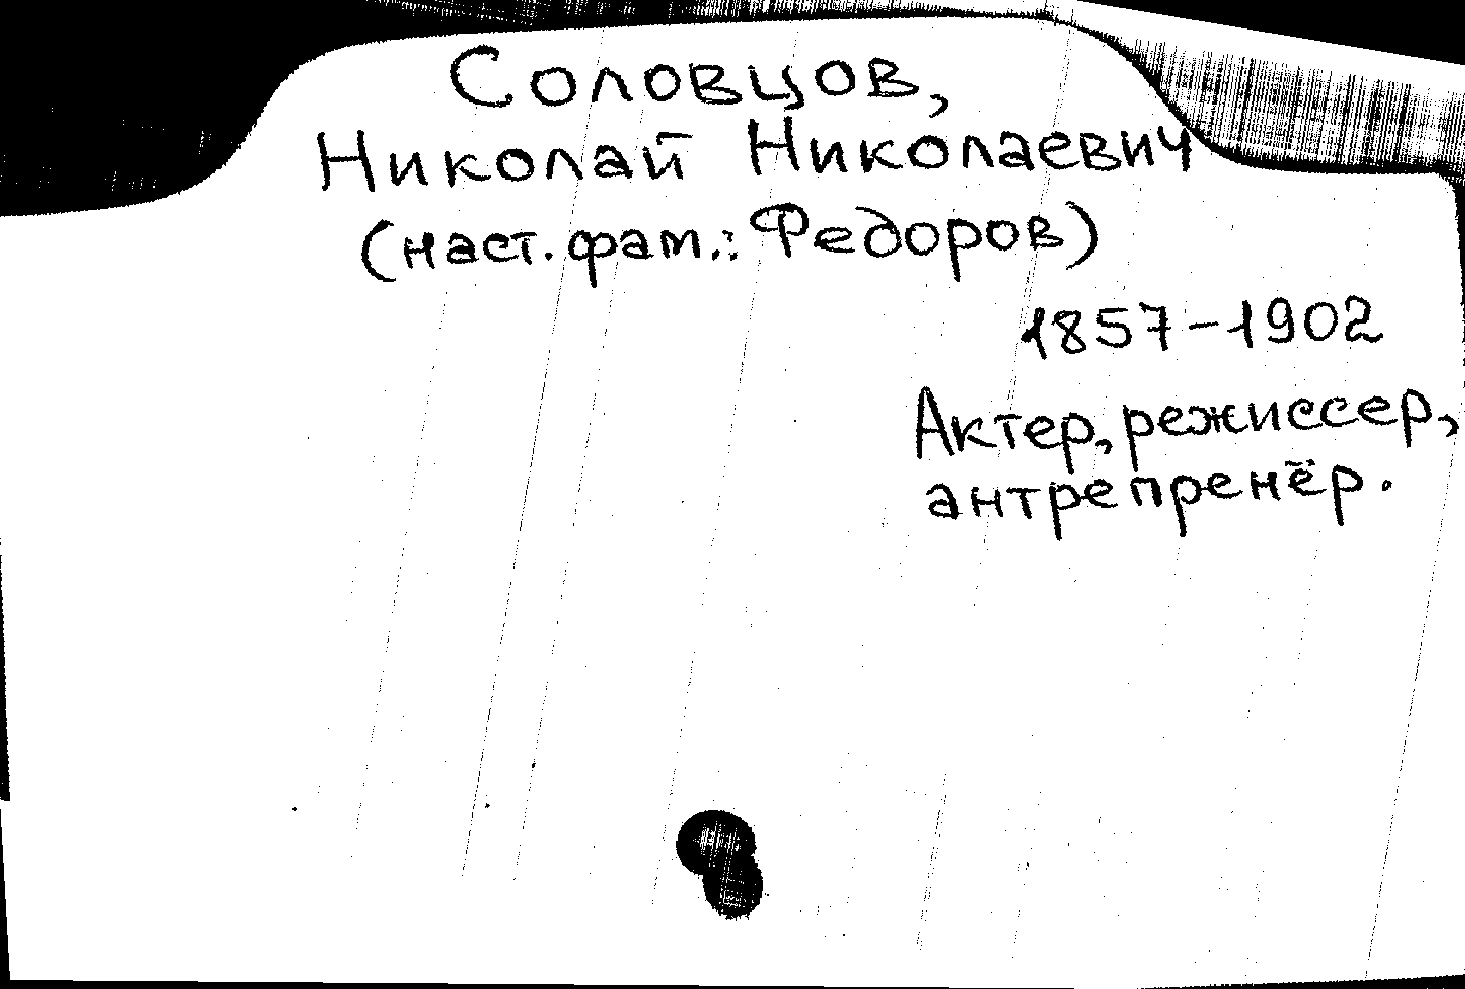 Соловцов,
Николай Николаевич
(наст. фам.: Федоров)
1857-1902
Актер, режиссер,
антрепренёр.